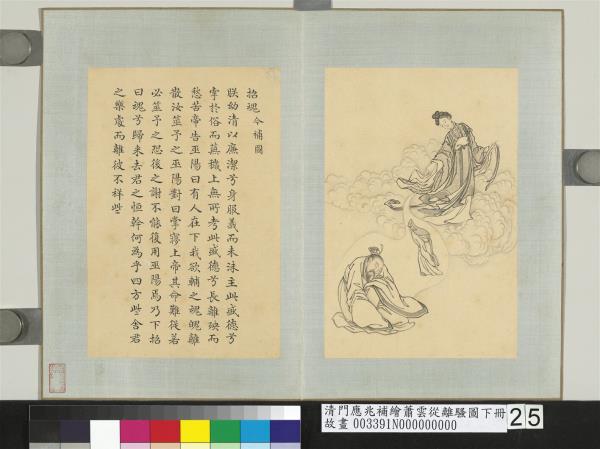 招魂今補圖
朕幼清以廉潔兮身服義而未沬主此盛德兮
牽於俗而蕪穢上無所考此盛德兮長離殃而
愁苦帝告巫陽曰有人在下我欲輔之魂魄離
散汝筮予之巫陽對曰掌寢上帝其命難從若
必筮予之恐後之謝不能復用巫陽焉乃下招
曰魂兮歸來去君之恒幹何為乎四方些舍君
之樂處而離彼不祥些
清門應兆補繪蕭雲從離騷圖下冊
故畫 003391N000000000
25